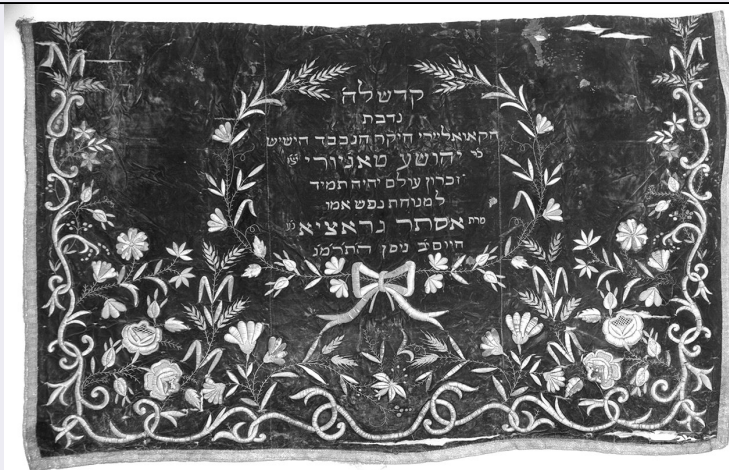 קדש לה
נדבת
הקאואלײרי היקר הנכבד הישיש
כ״ר יהושע טאניורי
זכרון עולם יהיה תמיד
למנוחת נפש אמו
מרת אסתר גראציא
ניסן התרמג